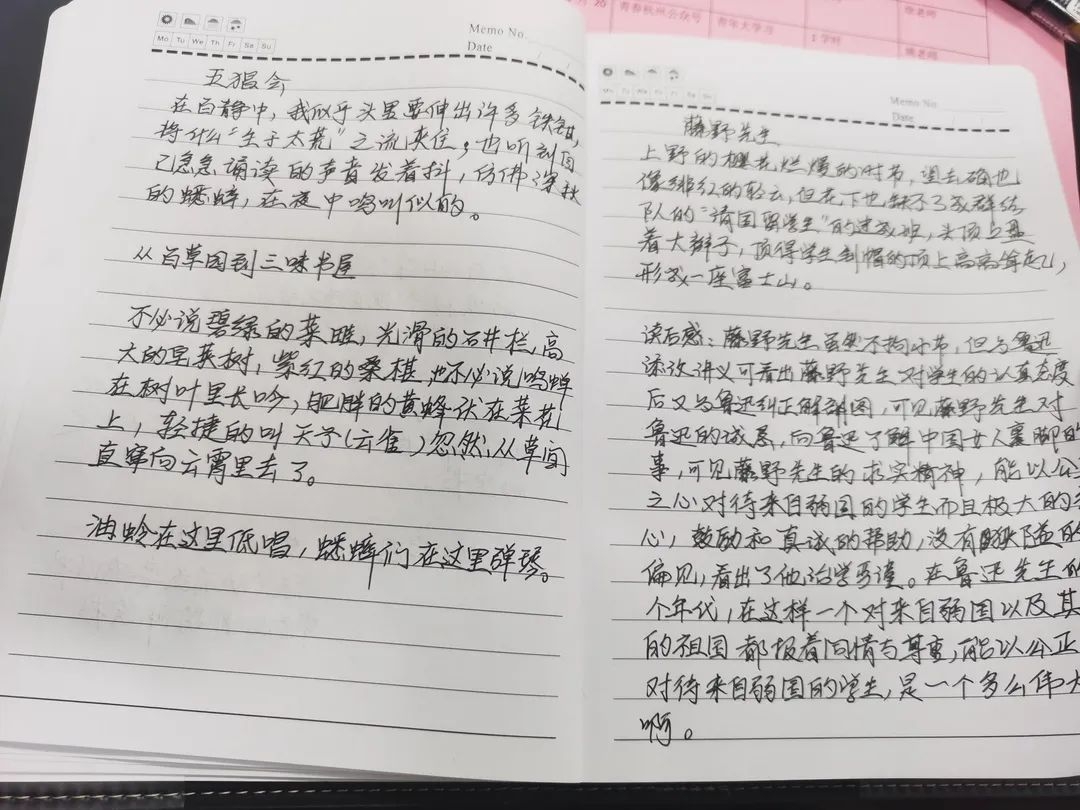 Memo No.
Mo Tu We Th Fr Sa Su
Date
五猖会
在百静中，我似乎头里要伸出许多铁钳，
将什么“生于太荒”之流夹住；也听到自
己急急诵读的声音发着抖，仿佛深秋
的蟋蟀，在夜中鸣叫似的。
从百草园到三味书屋
不必说碧绿的菜畦，光滑的石井栏，高
大的皂荚树，紫红的桑椹，也不必说鸣蝉
在树叶里长吟，肥胖的黄蜂伏在菜花
上，轻捷的叫天子（云雀）忽然从草间
直窜向云霄里去了。
油蛉在这里低唱，蟋蟀们在这里弹琴。
青春杭州公众号
青年大学习
1学时
Memo No.
Date
藤野先生
上野的樱花烂熳的时节，望去确也
像绯红的轻云，但花下也缺不了成群结
队的“清国留学生”的速成班，头顶上盘
着大辫子，顶得学生制帽的顶上高高耸起，
形成一座富士山。
读后感：藤野先生虽然不拘小节，但为鲁迅
添改讲义可看出藤野先生对学生的认真态度
后又为鲁迅纠正解剖图，可见藤野先生对
鲁迅的诚恳，向鲁迅了解中国女人裹脚的
事，可见藤野先生的求实精神，能以公
之心对待来自弱国的学生而且极大的
心，鼓励和真诚的帮助，没有狭隘的
偏见，看出了他治学严谨。在鲁迅先生的
个年代，在这样一个对来自弱国以及其
的祖国都报着同情与尊重，能以公正
对待来自弱国的学生，是一个多么伟大
啊。